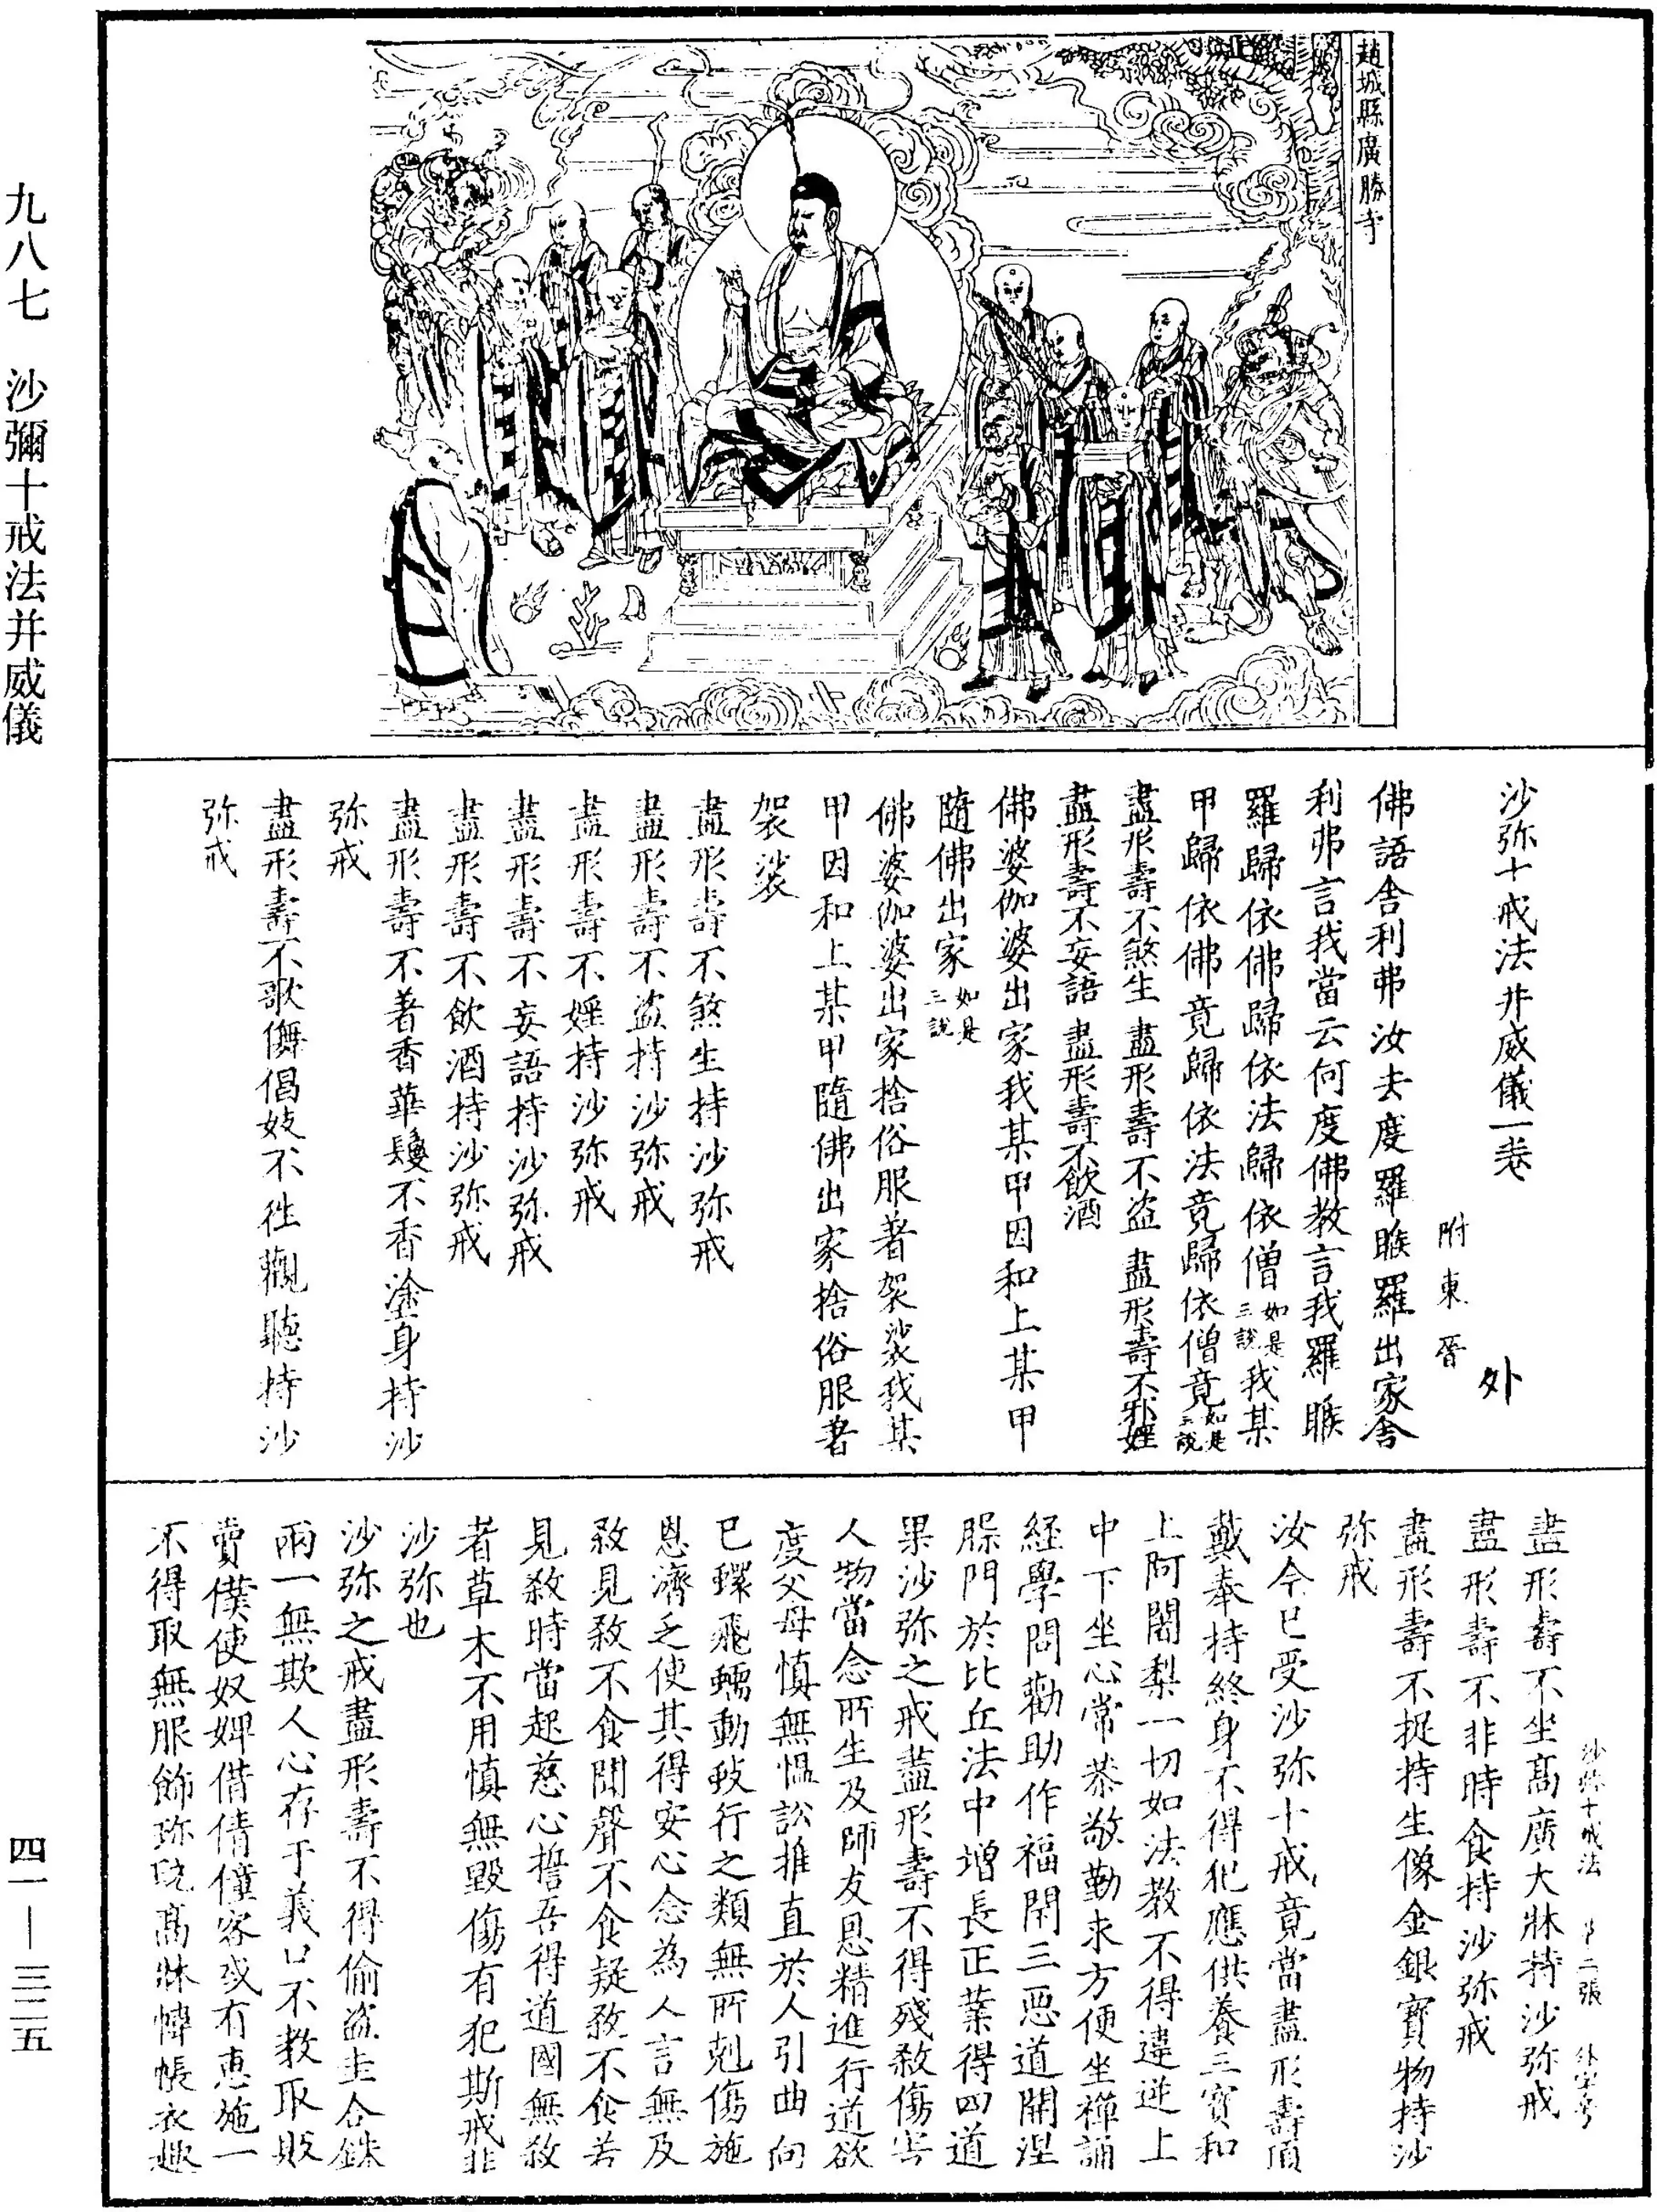 趙城縣廣勝寺
九八七　沙彌十戒法并威儀
四一—三二五
沙弥十戒法并威儀一卷
外
附東晉
佛語舍利弗汝去度羅睺羅出家舍
利弗言我當云何度佛教言我羅睺
羅歸依佛歸依法歸依僧如是三說我某
甲歸依佛竟歸依法竟歸依僧竟如是三說
盡形壽不煞生盡形壽不盗盡形壽不邪婬
盡形壽不妄語盡形壽不飲酒
佛婆伽婆出家我某甲因和上某甲
隨佛出家如是三說
佛婆伽婆出家捨俗服著袈裟我某
甲因和上某甲隨佛出家捨俗服著
袈裟
盡形壽不煞生持沙弥戒
盡形壽不盗持沙弥戒
盡形壽不婬持沙弥戒
盡形壽不妄語持沙弥戒
盡形壽不飲酒持沙弥戒
盡形壽不著香華鬘不香塗身持沙
弥戒
盡形壽不歌儛倡妓不往觀聽持沙
弥戒
沙弥十戒法　第二張　外字号
盡形壽不坐髙廣大牀持沙弥戒
盡形壽不非時食持沙弥戒
盡形壽不捉持生像金銀寳物持沙
弥戒
汝今已受沙弥十戒竟當盡形壽頂
戴奉持終身不得犯應供養三寳和
上阿闍梨一切如法教不得違逆上
中下坐心常恭敬勤求方便坐禪誦
経學問勸助作福閇三惡道開涅
槃門於比丘法中增長正業得四道
果沙弥之戒盡形壽不得殘殺傷害
人物當念所生及師友恩精進行道欲
度父母慎無愠訟推直於人引曲向
已蠉飛蠕動蚑行之類無所剋傷施
恩濟乏使其得安心念為人言無及
殺見殺不食聞聲不食疑殺不食若
見殺時當起慈心誓吾得道國無殺
者草木不用慎無毀傷有犯斯戒非
沙弥也
沙弥之戒盡形壽不得偷盗圭合銖
兩一無欺人心存于義口不教取販
賣僕使奴婢借倩僮客或有惠施一
不得取無服飾珎玩髙牀幃帳衣趣